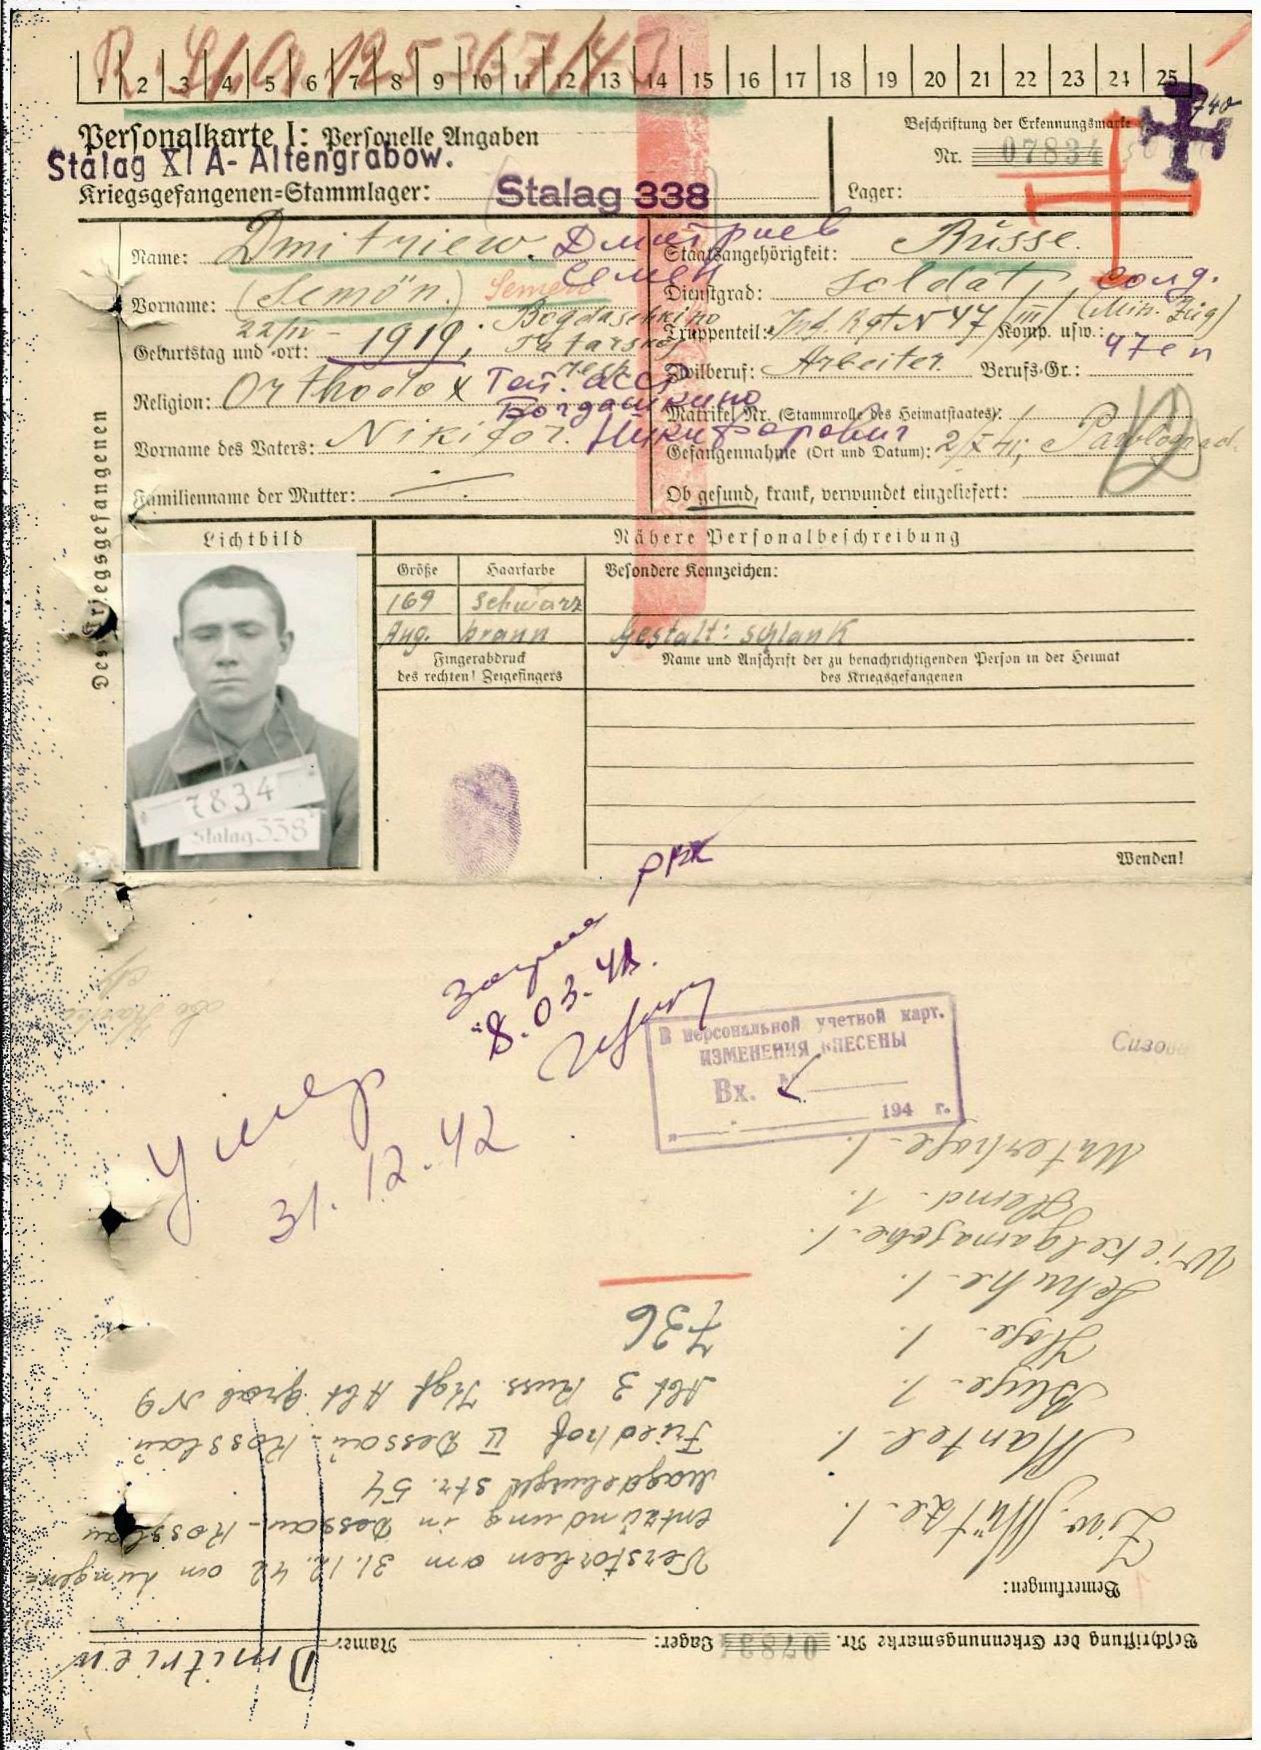 R. 41a 125367/43
1 2 3 4 5 6 7 8 9 10 11 12 13 14 15 16 17 18 19 20 21 22 23 24 25
740
Personalkarte I: Personelle Angaben
Stalag XI A - Altengrabow.
Kriegsgefangenen-Stammlager: Stalag 338
Beschriftung der Erkennungsmarke
Nr. 07834
Lager:
Des Kriegsgefangenen
Name: Dmitriew. Дмитриев
Vorname: (Semön.) Семен
Geburtstag und -ort: 22/IV - 1919, Bogdaschkino Tatarskoj
Religion: Orthodox Тат. АССР
Богдашкино
Vorname des Vaters: Nikifor. Никифорович
Familienname der Mutter: —
Staatsangehörigkeit: Russe.
Dienstgrad: Soldat, солд.
Truppenteil: Inf. Rgt N 47 /III/ Komp. usw.: (Min. Zug)
47 сп
Zivilberuf: Arbeiter. Berufs-Gr.:
Matrikel Nr. (Stammrolle des Heimatstaates): /
Gefangennahme (Ort und Datum): 2/X 41, Pawlograd.
Ob gesund, krank, verwundet eingeliefert:
Lichtbild
Nähere Personalbeschreibung
Größe Haarfarbe Besondere Kennzeichen:
169 schwarz
Aug. braun Gestalt: schlank
Fingerabdruck
des rechten! Zeigefingers
Name und Anschrift der zu benachrichtigenden Person in der Heimat
des Kriegsgefangenen
7834
Stalag 338
Wenden!
8.03.48.
В персональной учетной карт.
ИЗМЕНЕНИЯ ВНЕСЕНЫ
Вх. №
194 г.
Умер
31.12.42
Beschriftung der Erkennungsmarke Nr. 07834 Lager: Name: Dmitriew
Bemerkungen:
Ziv. Mütze. 1.
Mantel. 1.
Bluse. 1.
Hose. 1.
Schuhe. 1.
Wickelgamasche. 1.
Hemd. 1.
Unterhose. 1.
Verstorben am 31.12.42 an Lungen=
entzündung in Dessau-Rosslau
Magdeburger str. 54
Friedhof II Dessau-Rosslau.
Abt 3 Russ. Kgf Abt Grab N 9
736